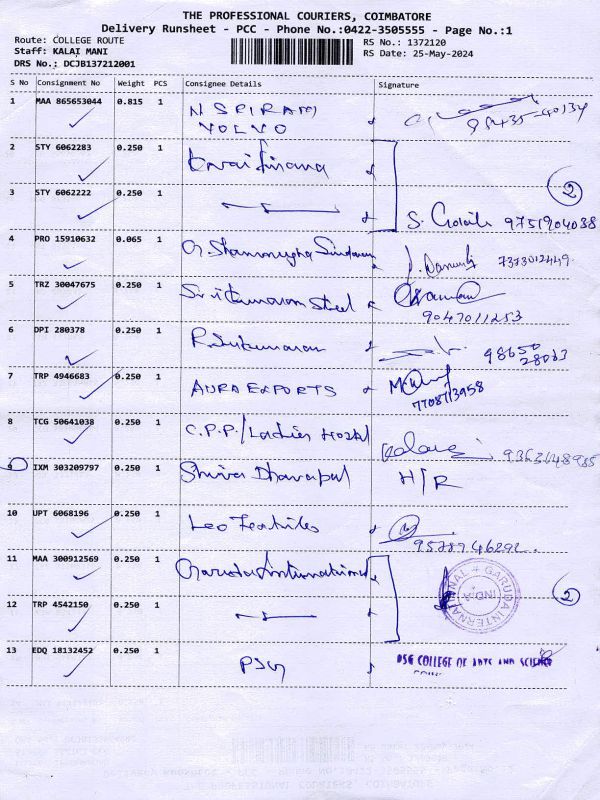 THE PROFESSIONAL COURIERS, COIMBATORE
Delivery Runsheet - PCC - Phone No.:0422-3505555 - Page No.:1
Route: COLLEGE ROUTE
Staff: KALAI MANI
DRS No.: DCJB137212001
RS No.: 1372120
RS Date: 25-May-2024
S No Consignment No Weight PCS Consignee Details Signature
1 MAA 865653044 0.815 1 N SRIRAM
VOLVO
2 STY 6062283 0.250 1
2
3 STY 6062222 0.250 1 9751904038
4 PRO 15910632 0.065 1 G. Shanmugha Sundaram 7373012449
5 TRZ 30047675 0.250 1 Sri Kumaran Steel
9047011253
6 DPI 280378 0.250 1 R. Sukumaran 98650
28063
7 TRP 4946683 0.250 1 AURA EXPORTS
8 TCG 50641038 0.250 1 C.P.P / Ladies Hostel
9 IXM 303209797 0.250 1 Shiva Dhanapal H/R
10 UPT 6068196 0.250 1 Leo Textiles
9578946292
11 MAA 300912569 0.250 1 Garuda International
GARUDA INTERNATIONAL
INDIA
2
12 TRP 4542150 0.250 1
13 EDQ 18132452 0.250 1 PSG PSG COLLEGE OF ARTS AND SCIENCE